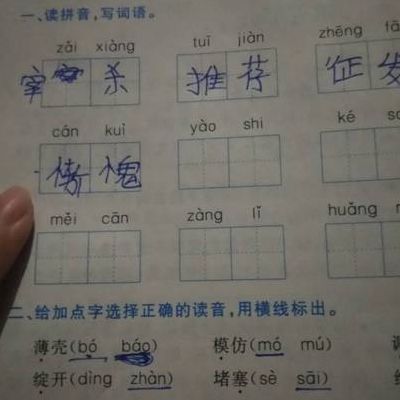 一、读拼音,写词语。
zǎi xiàng tuī jiàn zhēng fā
宰 杀 推荐 征发
cán kuì yào shi ké
惭愧
měi cān zàng lǐ huāng
二、给加点字选择正确的读音,用横线标出。
薄壳(bó báo) 模仿(mó mú)
绽开(dìng zhàn) 堵塞(sè sāi)